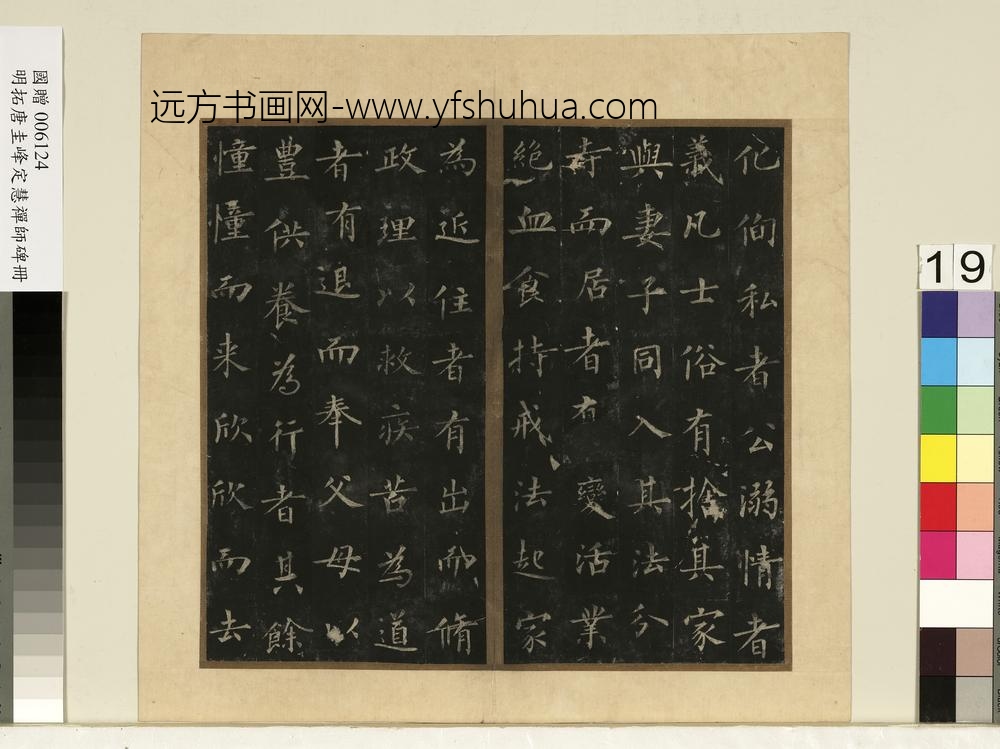 國贈 006124
明拓唐圭峰定慧禪師碑冊
远方书画网-www.yfshuhua.com
化徇私者公溺情者
義凡士俗有捨其家
與妻子同入其法分
寺而居者有變活業
絶血食持戒法起家
為近住者有出而脩
政理以救疾苦為道
者有退而奉父母以
豊供養為行者其餘
憧憧而来欣欣而去
19